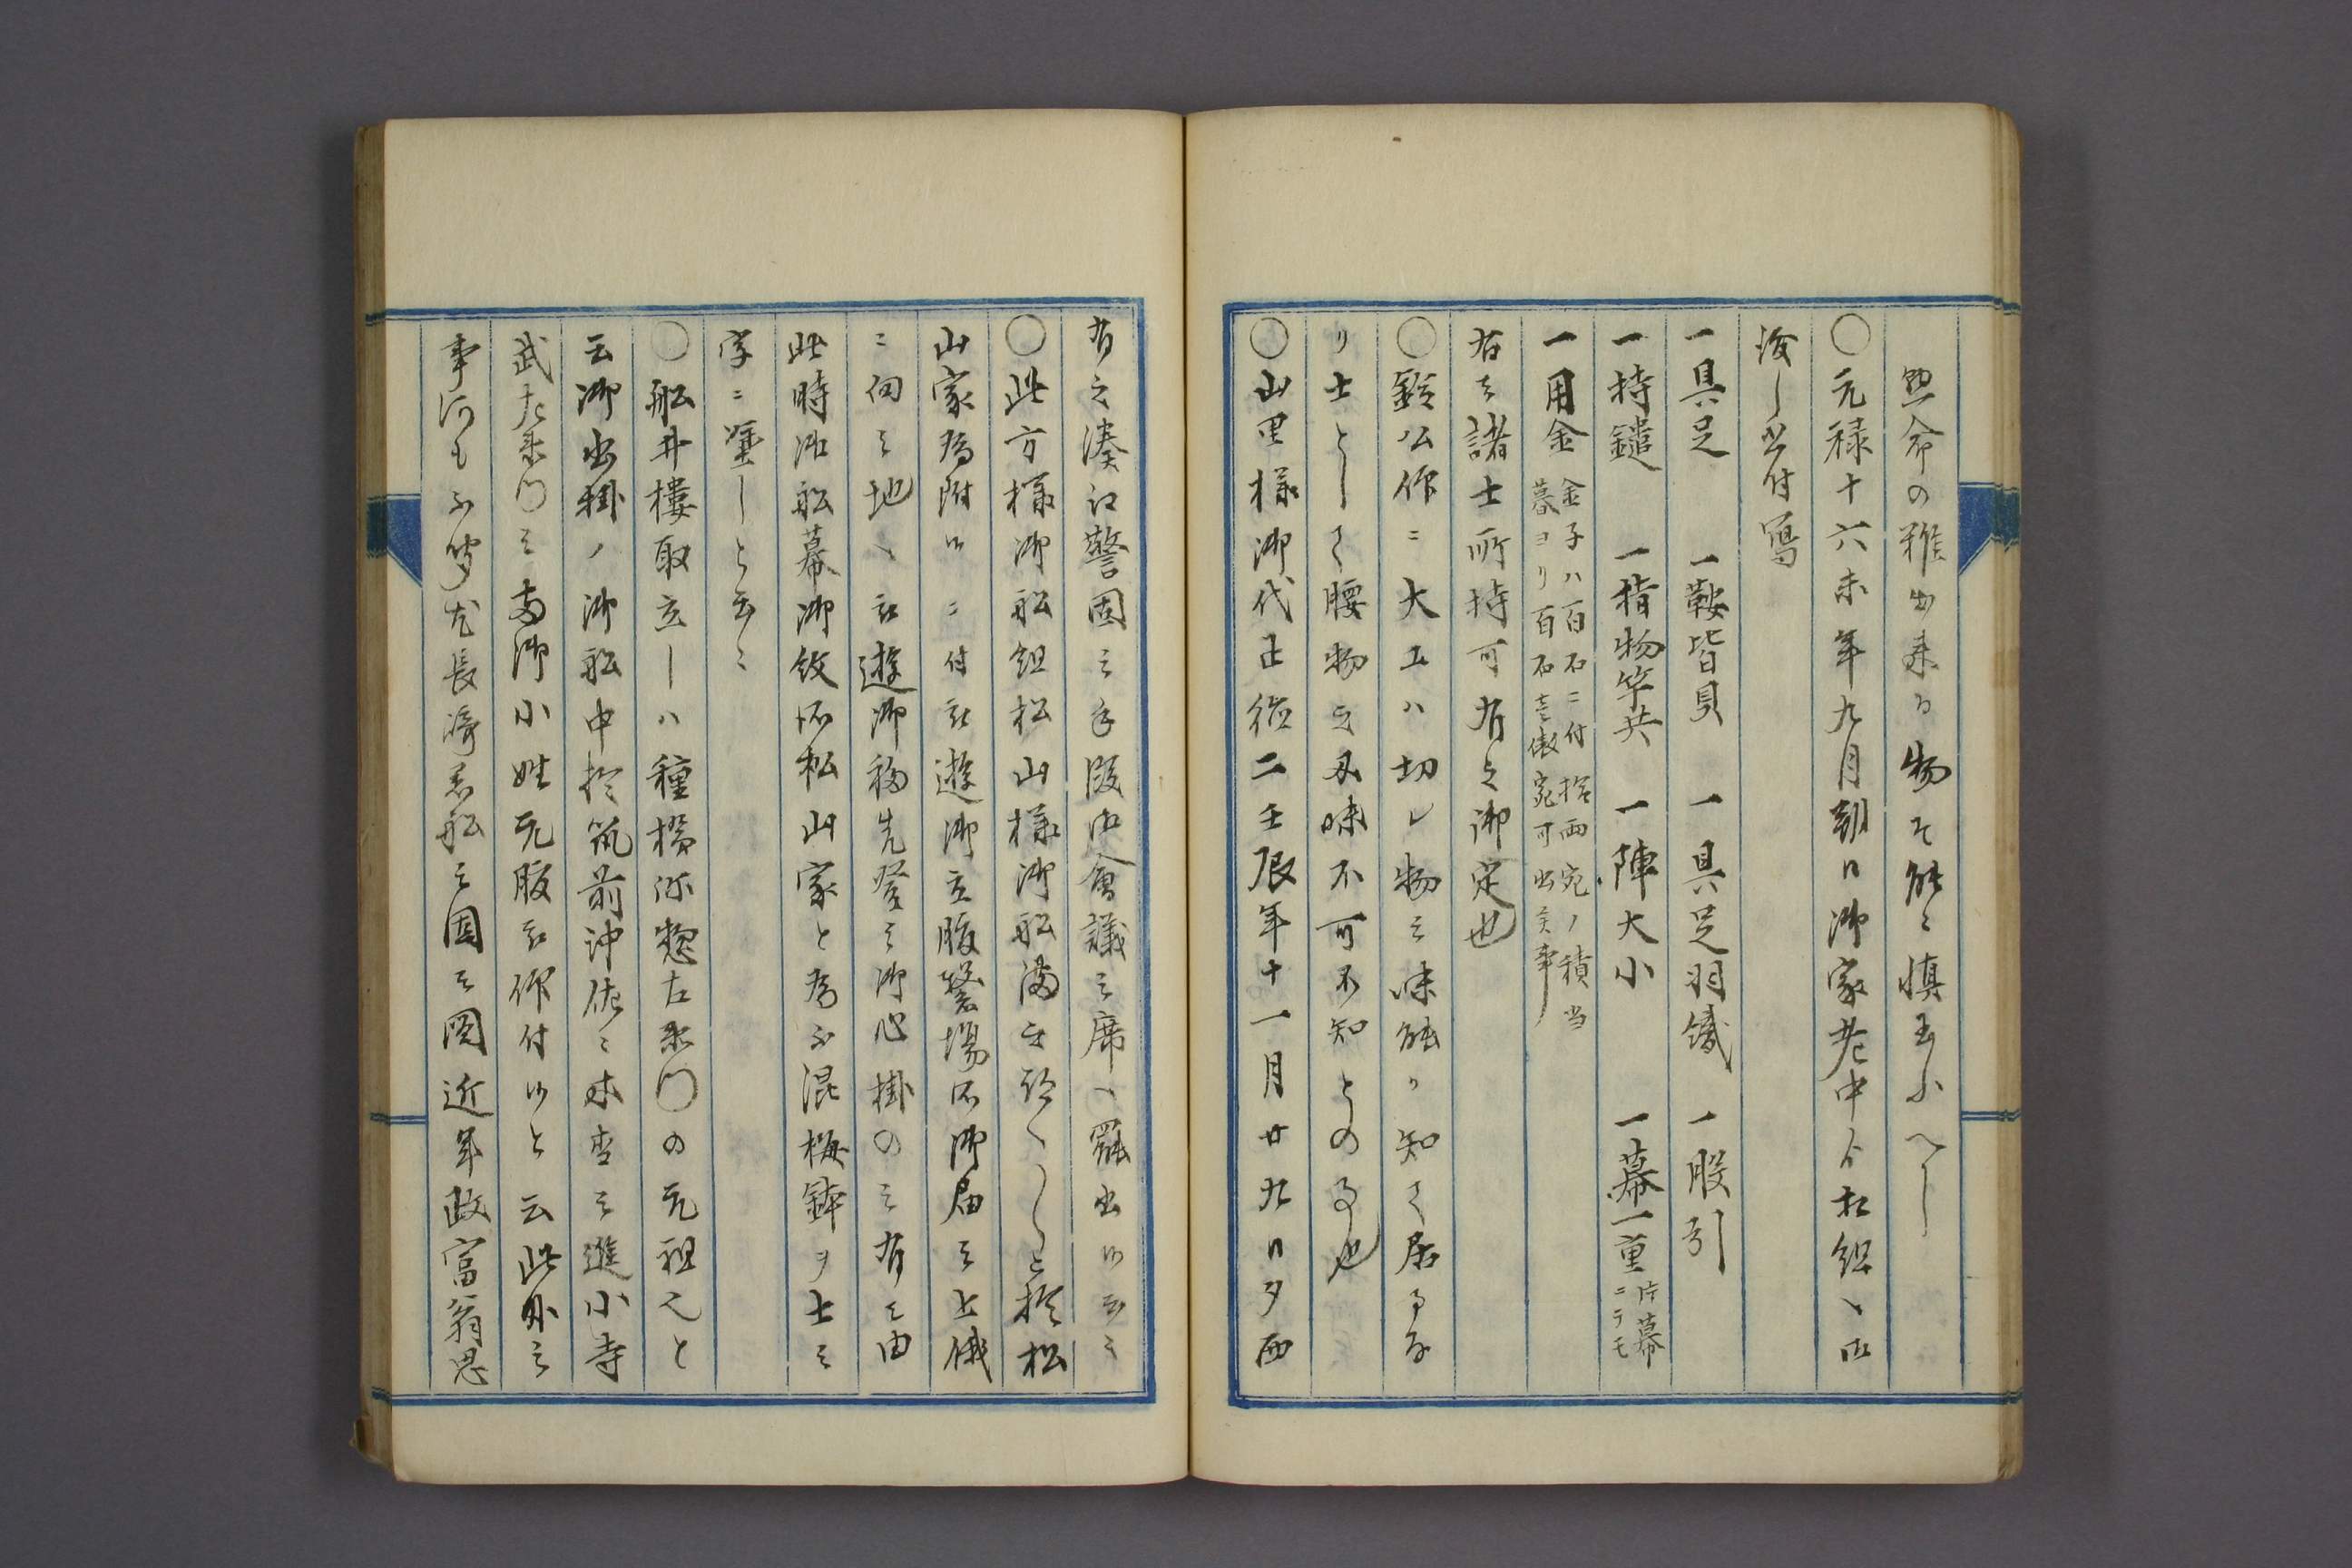 命の雅出来る物そ能々慎玉ふへし
〇元禄十六未年九月朔日御家老中ゟ相組へ御
渡し書付写
一具足 一鞍皆具 一具足羽織 一股引
一持鑓 一指物竿共 一陣大小 一幕一重 片幕
ニテモ
一用金 金子ハ百石ニ付拾両宛ノ積当
暮ヨリ百石壱俵宛可出之事
右之諸士所持可有之御定也
〇鈴公作ニ大工ハ切レ物之味能ク知て居るな
り士として腰物之刃味不可不知との事也
〇山里様御代正徳二壬辰年十一月廿九日夕西
有之湊江警固之手段御會議之席へ罷出候云々
〇此方様御船組松山様御船 と於松
山家為附候ニ付被遊御立腹繋場所御届之上俄
ニ向之地へ被遊御移先登之御心掛の之有之由
此時御船幕御紋所松山家と為不混梅鉢ヲ士之
字ニ塗しと云々
〇船井樓取立しハ種橋弥惣左衛門の元祖也と
云御出掛ノ御船中於筑前沖佐々木杢之進小寺
武左衛門之両御小姓元服被仰付候と云此外之
事何も不分尤長濤君船之図之図近年政富翁思